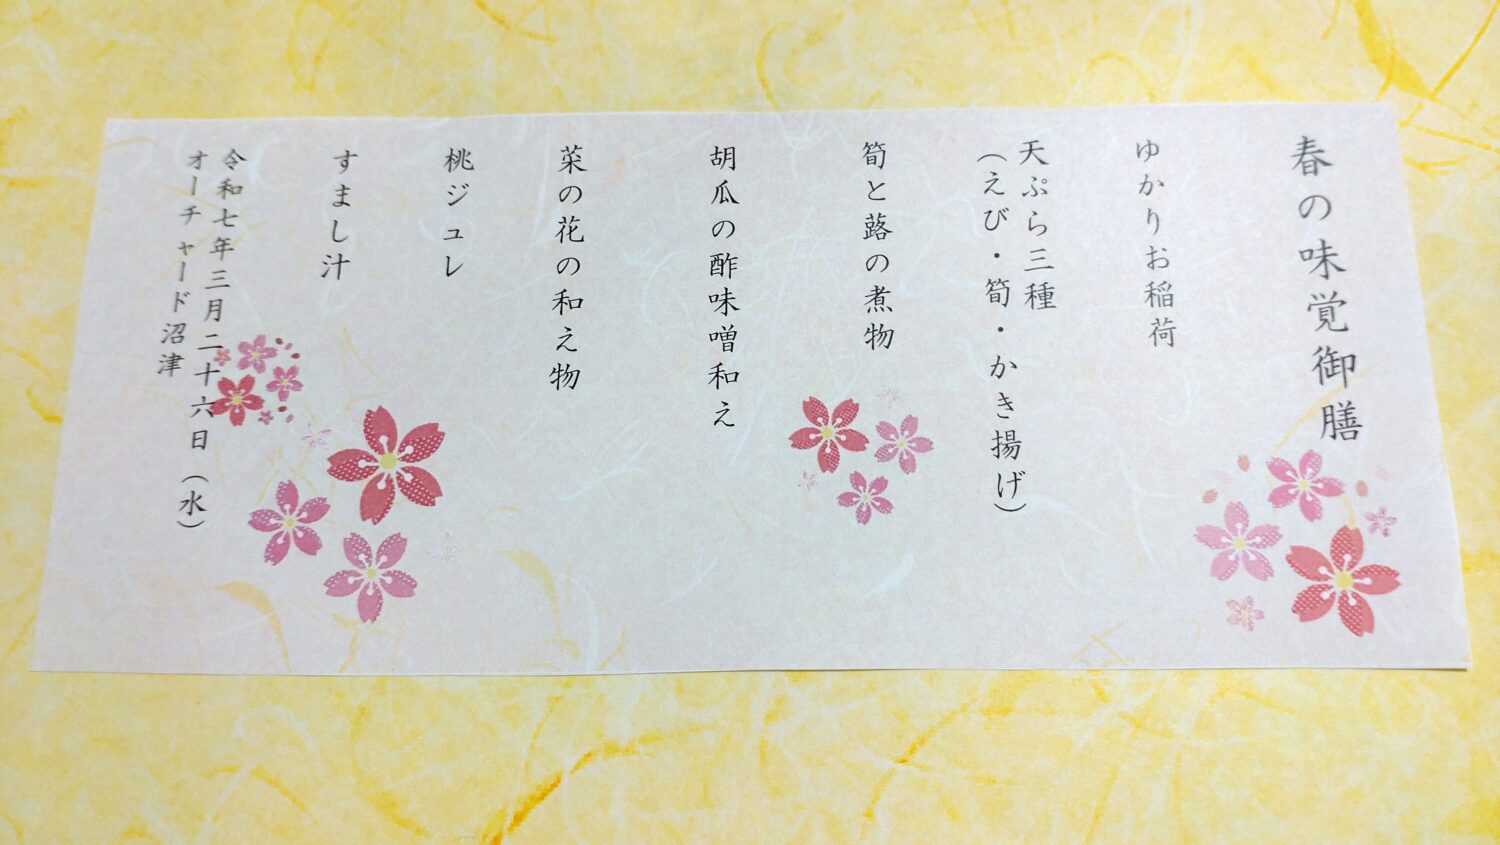 春の味覚御膳
ゆかりお稲荷
天ぷら三種
（えび・筍・かき揚げ）
筍と蕗の煮物
胡瓜の酢味噌和え
菜の花の和え物
桃ジュレ
すまし汁
令和七年三月二十六日（水）
オーチャード沼津